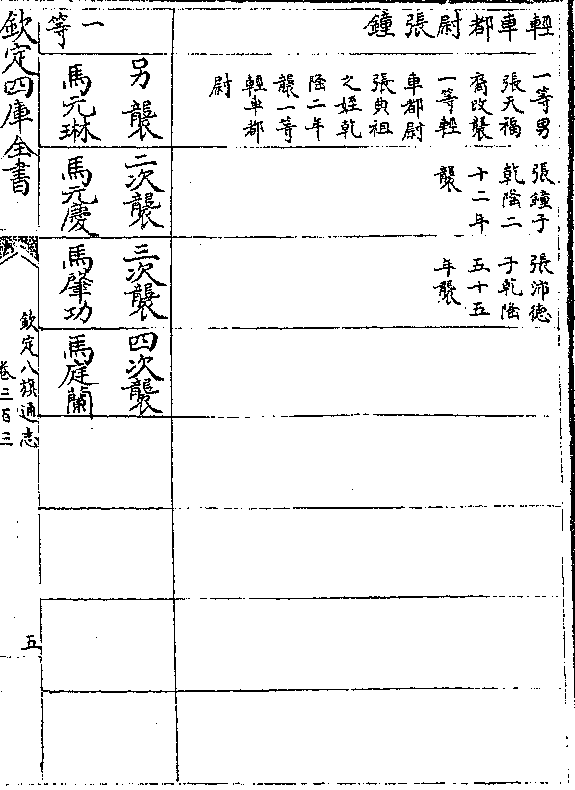 輕車都尉張鐘
一等男
張天福
裔改襲
一等輕
車都尉
張典祖
之姪乾
隆二年
襲一等
輕車都
尉
張鐘子
乾隆二
十二年
襲
張沛德
子乾隆
五十五
年襲
一等
另襲
馬元琳
二次襲
馬元慶
三次襲
馬肇功
四次襲
馬庭蘭
欽定四庫全書
欽定八旗通志
卷三百三
五